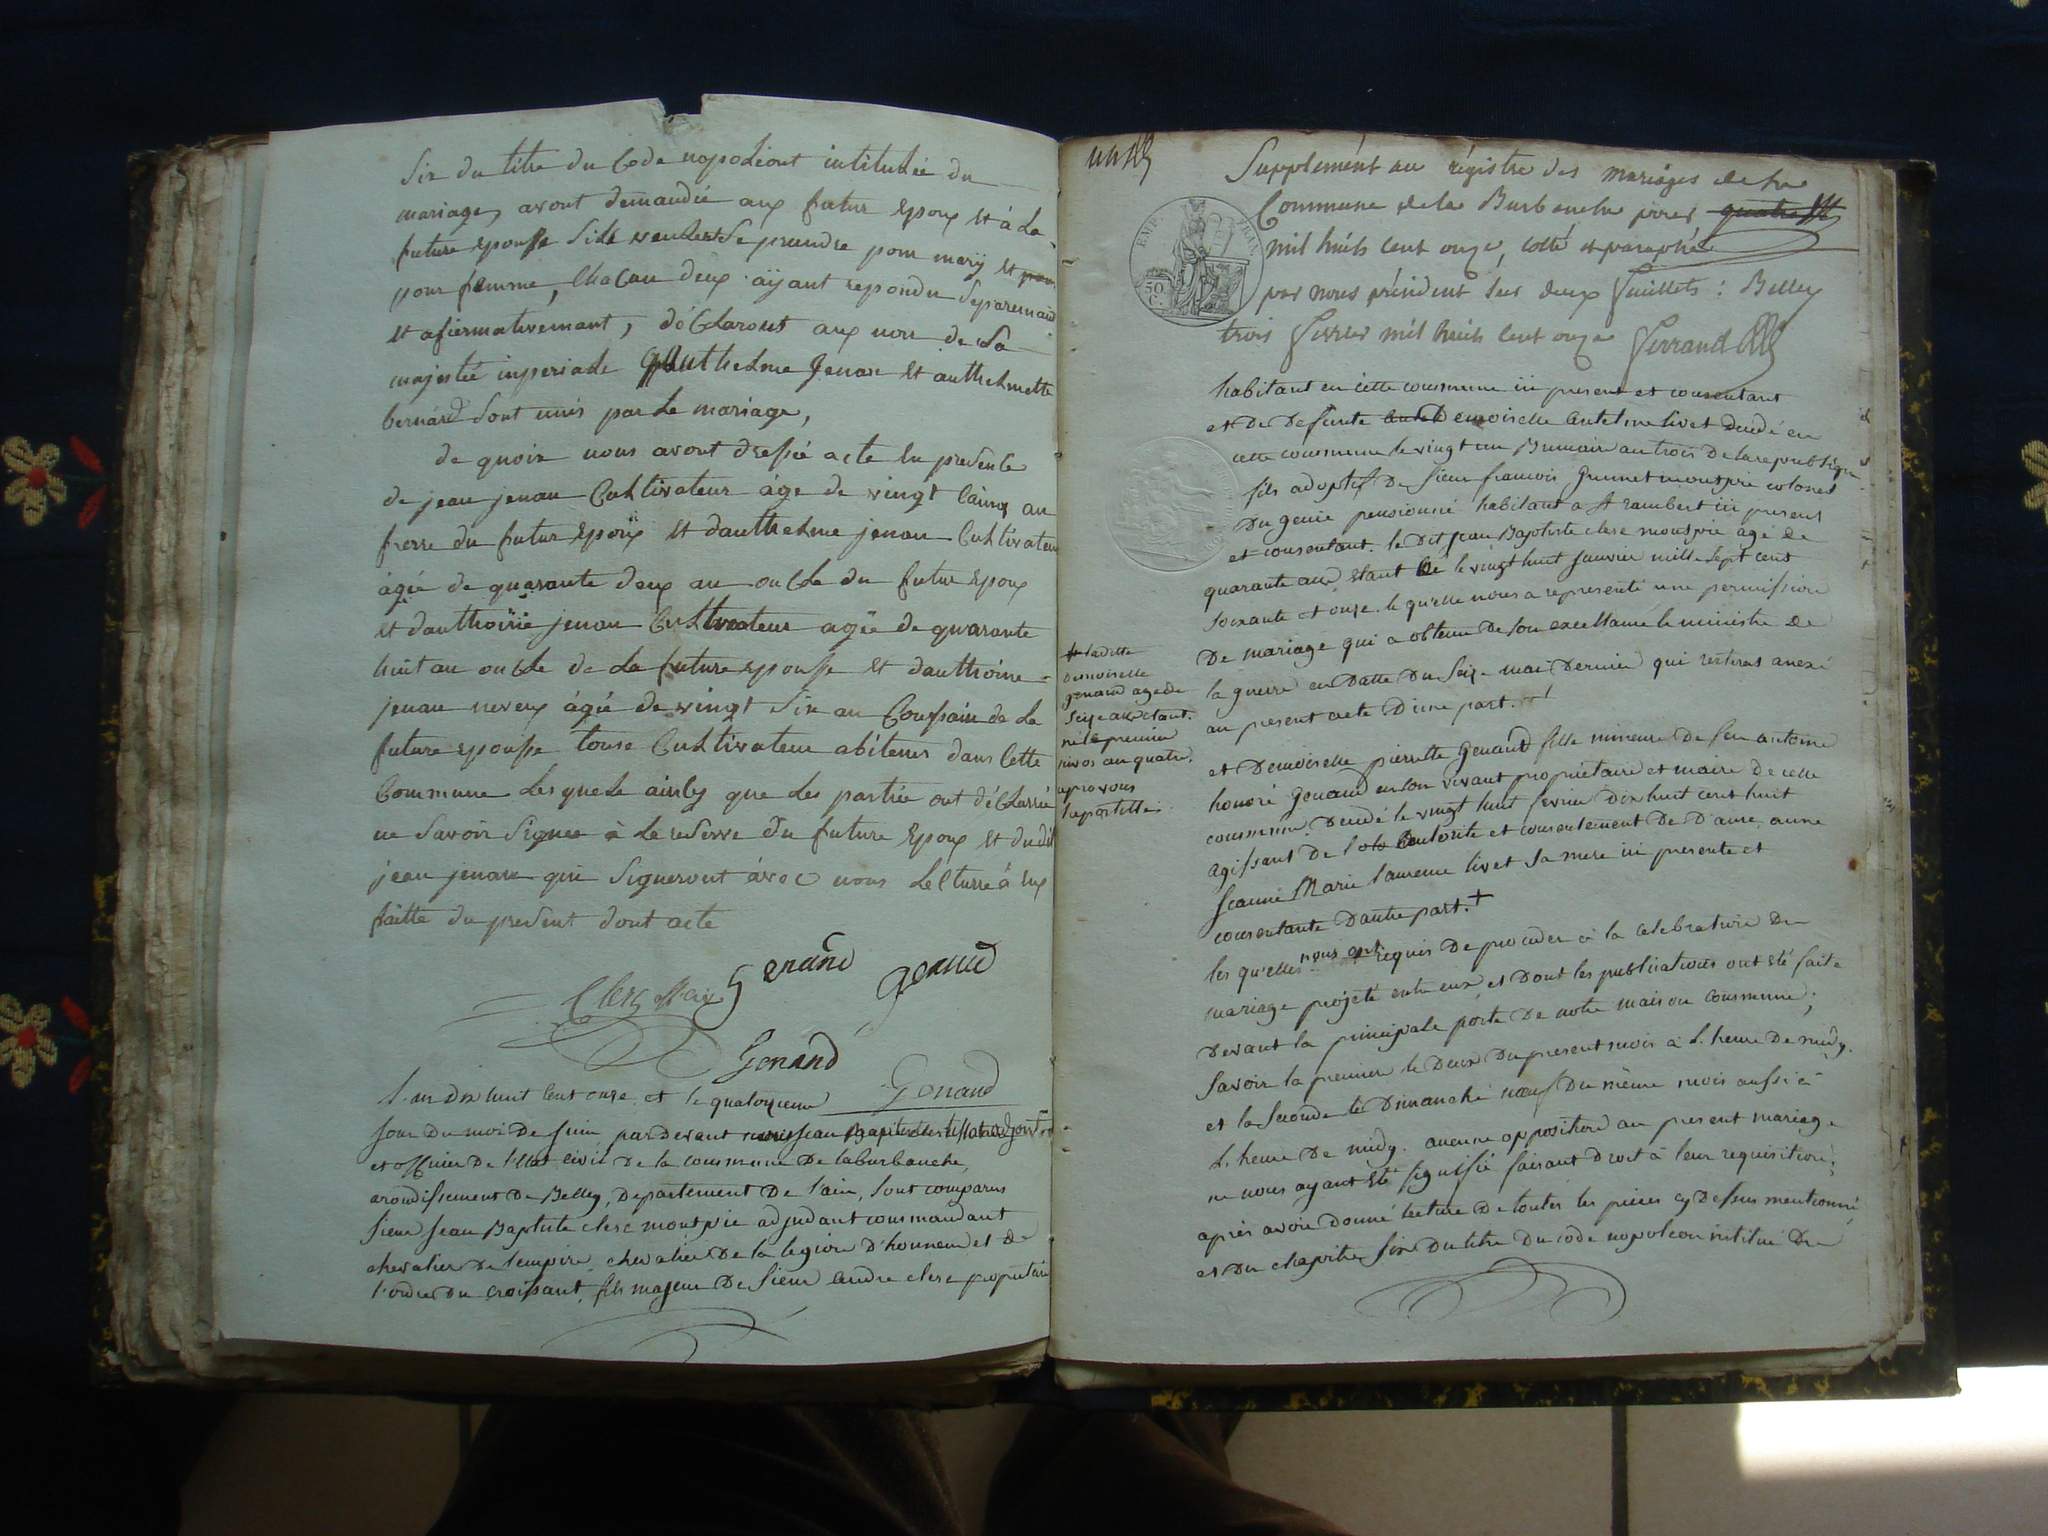 Six du titre du Code napoléont intitulée du
mariage, avont demandée aux futur Epoux et à La
future Epousse Si ils veulent Se prendre pour mary et pour
pour femme, Chacun deux ayant repondu Separemand
et afiermativemant, déClarons aux nom de Sa
majestée inperiale Anthelme Jenan et anthelmette
bernard Sont unis par Le mariage,
de quoix nous avont dressée acte En presente
de jean jenan Cultivateur âge de vingt Cainq an
frerre du futur Epoux et danthelme jenan Cultivateur
âgée de quarante deux an onCle du futur Epoux
et danthoine jenan Cultivateur agée de quarante
huit an onCle de La future Epousse et danthoine
jenan neveux âgée de vingt Six an Coussain de La
future Epousse touse Cultivateur abitener dans Cette
Commune Lesquele ainsy que Les partiée ont déClarrée
ne Savoir Signer à La reserve du future Epoux et dudit
jean jenan qui Signeront avec nous LeCturre à Eux
faitte du present dont acte
Clerc Genand genand
Genand
Genand
L'an dix huit cent onze et le quatorzieme
jour du moi de juin, pardevant Jean
et officier de l'Etat civil de la commune de laburbanche,
arondissement de Belley, Departement de l'ain, sont comparus
Sieur Jean Baptiste clerc montpié adjudant commandant
chevalier de l'empire, chevalier de la legion d'honneur et de
l'ordre du croissant, fils majeur de Sieur andre clerc propriétaire
Supplemént au régistre des mariages de la
Commune de la Burbanche pour
mil huit cent onze, cotté et paraphé
par nous président sur deux feuillets : Belley
trois fevrier mil huit cent onze Ferrand
EMP. FRAN.
50 C.
habitant en cette commune ici present et consentant
et de defunte Demoiselle antelme livet décdé en
cette commune le vingt un Brumair an trois de la republique
fils adoptif de Sieur francois Grumet montpié colonel
du genie pensionné habitant a St rambert ici present
et consentant. le dit Jean Baptiste clerc montpié agé de
quarante ans étant né le vingt huit Janvier mille sept cent
soixante et onze. le qu'elle nous a representé une permission
De mariage qui a obtenu de son excellance le ministre de
la guerre en datte du seize mai dernier qui restera anexé
au present acte d'une part.
et Demoiselle pierrette genand fille mineure de feu antoine
honoré genand en son vivant propriétaire et maire de cette
commune. decdé le vingt huit fevrier dix huit cent huit
agissant de l'autorité et consentement de Dame anne
Jeanne Marie laurence livet sa mere ici presente et
consentante d'autre part. +
les qu'elles nous ont requis de proceder à la celebration du
mariage projeté entre eux, et dont les publications ont été faite
devant la principale porte de notre maison commune;
savoir la premiere le deux du present mois à L'heure de midy.
et la seconde le dimanche neuf du même mois aussi à
L'heure de midy. aucune opposition au present mariage
ne nous ayant été signifié faisant droit à leur requisition;
après avoir donné lecture de toutes les pieces cy dessus mentionné,
et du chapitre six du titre du code napoleon intitulé du
+ ladite
demoiselle
genand agé de
seize ans étant
né le premier
nivos an quatre.
aprovons